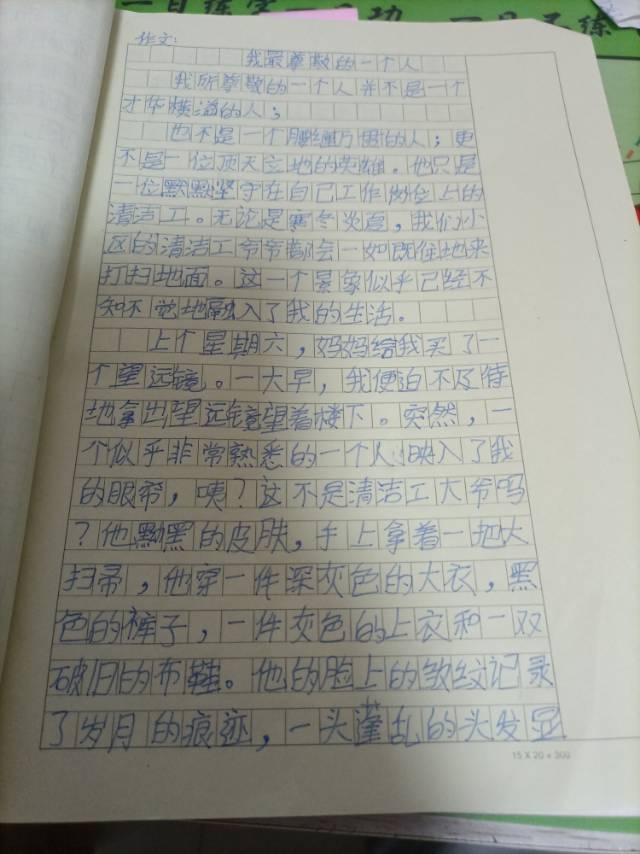 一日练字一日功 一日不练
作文:
我最尊敬的一个人
我所尊敬的一个人并不是一个
才华横溢的人;
也不是一个腰缠万贯的人;更
不是一位顶天立地的英雄。他只是
一位默默坚守在自己工作岗位上的
清洁工。无论是寒冬炎夏,我们小
区的清洁工爷爷都会一如既往地来
打扫地面。这一个景象似乎已经不
知不觉地融入了我的生活。
上个星期六,妈妈给我买了一
个望远镜。一大早,我便迫不及待
地拿出望远镜望着楼下。突然,一
个似乎非常熟悉的一个人映入了我
的眼帘,咦?这不是清洁工大爷吗
?他黝黑的皮肤,手上拿着一把大
扫帚,他穿一件深灰色的大衣,黑
色的裤子,一件灰色的上衣和一双
破旧的布鞋。他的脸上的皱纹记录
了岁月的痕迹,一头蓬乱的头发显
15 X 20 = 300